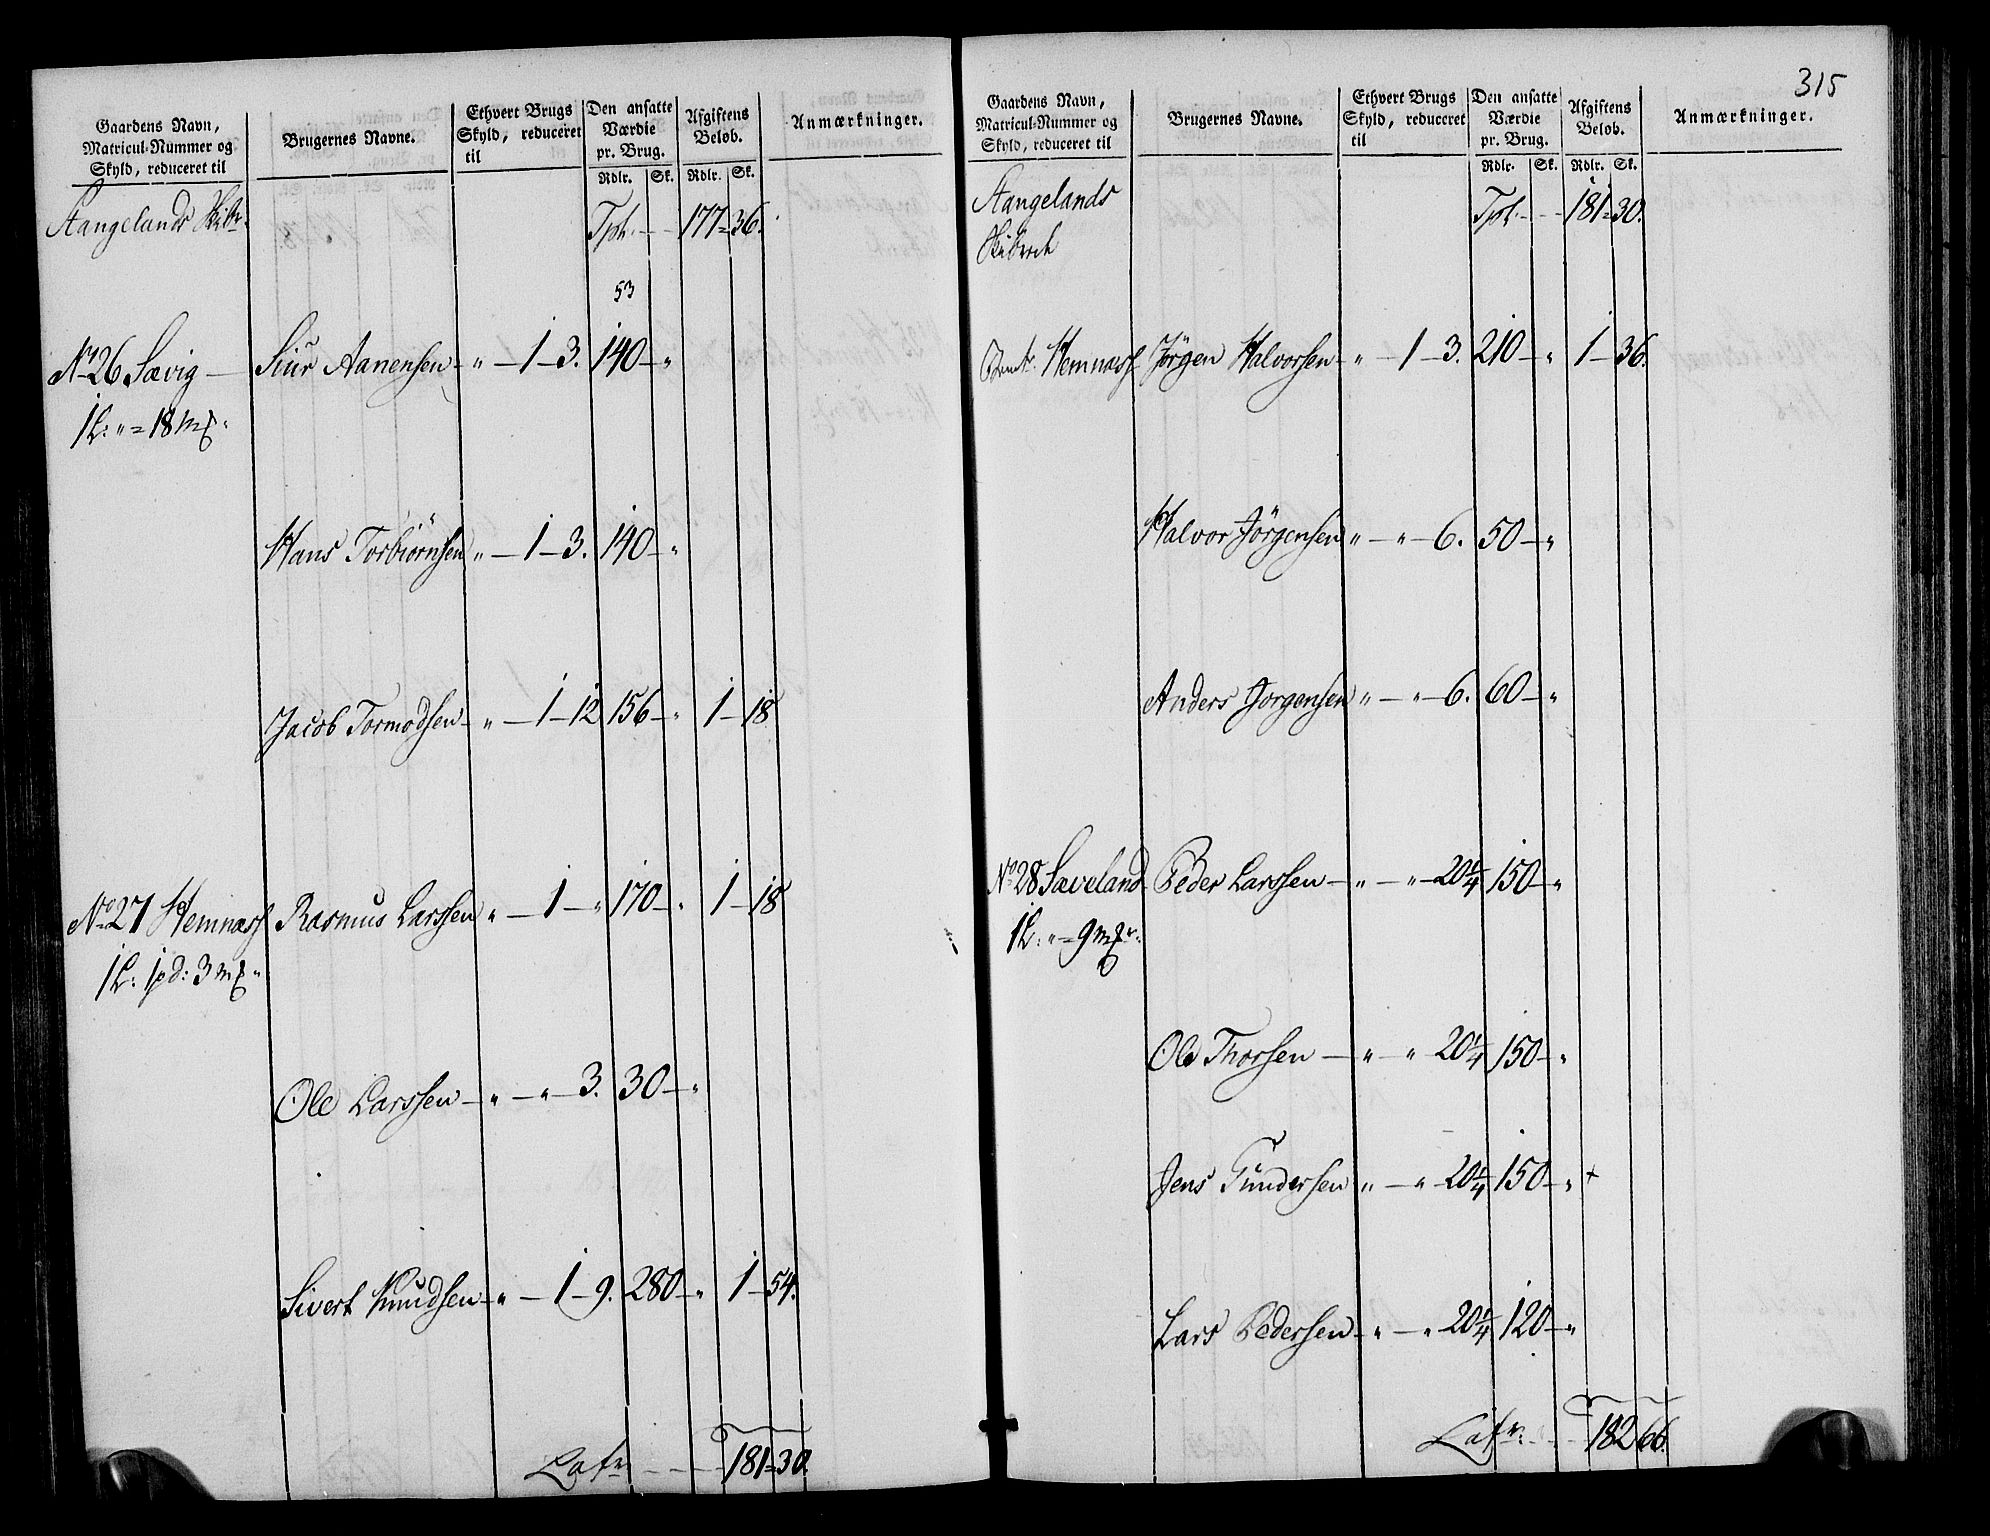 Gaardens Navn,
Matricul-Nummer og
Skyld, reduceret til
Brugernes Navne.
Ethvert Brugs
Skyld, reduceret
til
Den ansatte
Værdie
pr. Brug.
Rdlr. Sk.
Afgiftens
Beløb.
Rdlr. Sk.
Anmærkninger.
Stangelands Skibr. Tpt. - - 177 = 36.
53
No 26 Sævig — Siur Aanensen - " - 1 - 3. 140 - "
1 L: " = 18 m
Hans Torbiörnsen " - 1 - 3. 140 - "
Jacob Tormodsen - " - 1 - 12 156 - " 1 - 18
No 27 Hemnæss Rasmus Larssen " - 1 - " 170 - " 1 - 18
1 L: 1 pd: 3 m
Ole Larssen - " - " - 3. 30 - "
Sivert Knudsen - " - 1 - 9. 280 - " 1 - 54.
Lafr - - - 181 = 30.
315
Gaardens Navn,
Matricul-Nummer og
Skyld, reduceret til
Brugernes Navne.
Ethvert Brugs
Skyld, reduceret
til
Den ansatte
Værdie
pr. Brug.
Rdlr. Sk.
Afgiftens
Beløb.
Rdlr. Sk.
Anmærkninger.
Stangelands Tpt. - - 181 = 30.
Skibrede
Hemnæss Jörgen Halvorsen - " - 1 - 3. 210 - " 1 - 36.
Halvor Jörgensen " - " - 6. 50 - "
Anders Jorgensen " - " - 6. 60 - "
No 28 Sæveland Peder Larssen - " - " - 20 1/4 150 - "
1 L: " = 9 m
Ole Thorsen - " - " 20 1/4 150 - "
Jens Gundersen " - " 20 1/4 150 - " +
Lars Pedersen - " - " 20 1/4 120 - "
Lafr: - - - 182 66.